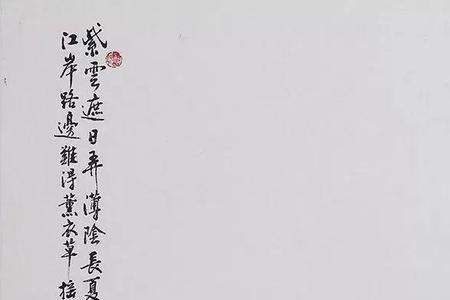 紫雲遮日弄薄陰長夏
江岸路邊難得薰衣草搖